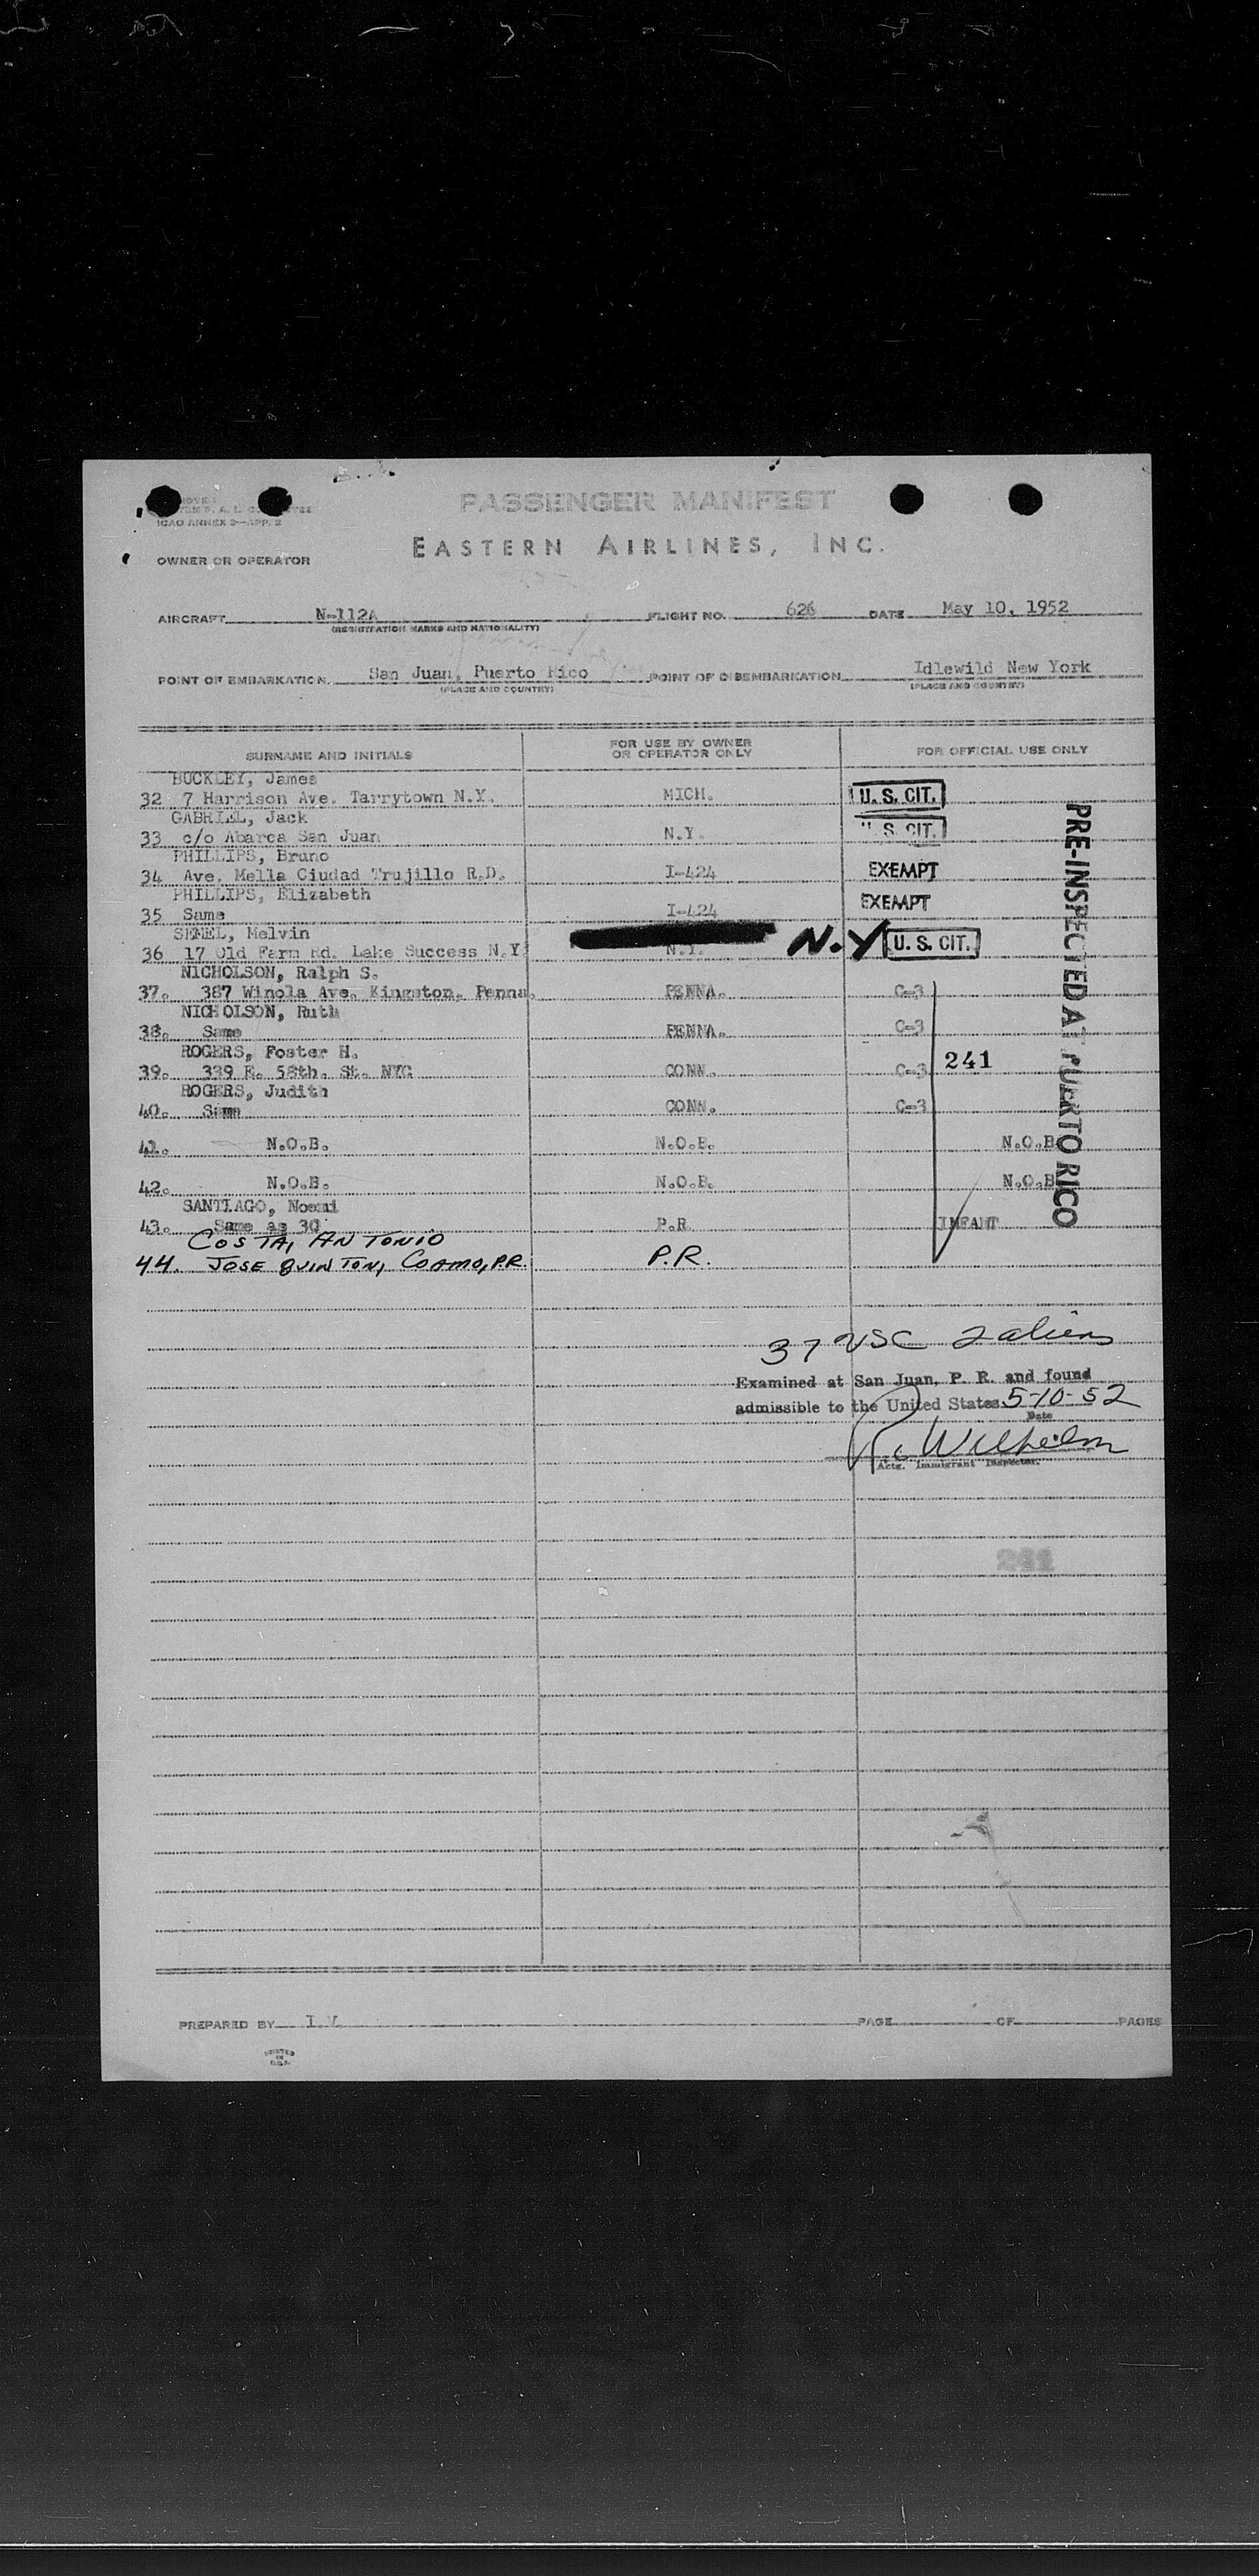 PASSENGER MANIFEST
ICAO ANNEX 9—APP. 2
EASTERN AIRLINES, INC.
OWNER OR OPERATOR
AIRCRAFT N-112A FLIGHT NO. 626 DATE May 10, 1952
(REGISTRATION MARKS AND NATIONALITY)
POINT OF EMBARKATION San Juan, Puerto Rico POINT OF DISEMBARKATION Idlewild New York
(PLACE AND COUNTRY) (PLACE AND COUNTRY)
SURNAME AND INITIALS FOR USE BY OWNER OR OPERATOR ONLY FOR OFFICIAL USE ONLY
BUCKLEY, James
32 7 Harrison Ave. Tarrytown N.Y. MICH. U. S. CIT.
GABRIEL, Jack
33 c/o Abarca San Juan N.Y. U. S. CIT.
PHILLIPS, Bruno
34 Ave. Mella Ciudad Trujillo R.D. I-424 EXEMPT
PHILLIPS, Elizabeth
35 Same I-424 EXEMPT
SEMEL, Melvin
36 17 Old Farm Rd. Lake Success N.Y. N.Y. N.Y U. S. CIT.
NICHOLSON, Ralph S.
37. 387 Winola Ave. Kingston, Penna. PENNA. C-3
NICHOLSON, Ruth
38. Same PENNA. C-3
ROGERS, Foster H.
39. 339 E. 58th. St. NYC CONN. C-3 241
ROGERS, Judith
40. Same CONN. C-3
41. N.O.B. N.O.B. N.O.B.
42. N.O.B. N.O.B. N.O.B.
SANTIAGO, Noemi
43. Same as 30 P.R. INFANT
COSTA, ANTONIO
44. JOSE QUINTON, COAMO, P.R. P.R.
PRE-INSPECTED AT PUERTO RICO
37 USC 2 aliens
Examined at San Juan, P. R. and found
admissible to the United States 5-10-52
Date
R. C. Wilhelm
Actg. Immigrant Inspector.
241
PREPARED BY I.V. PAGE OF PAGES
PRINTED
IN
U.S.A.